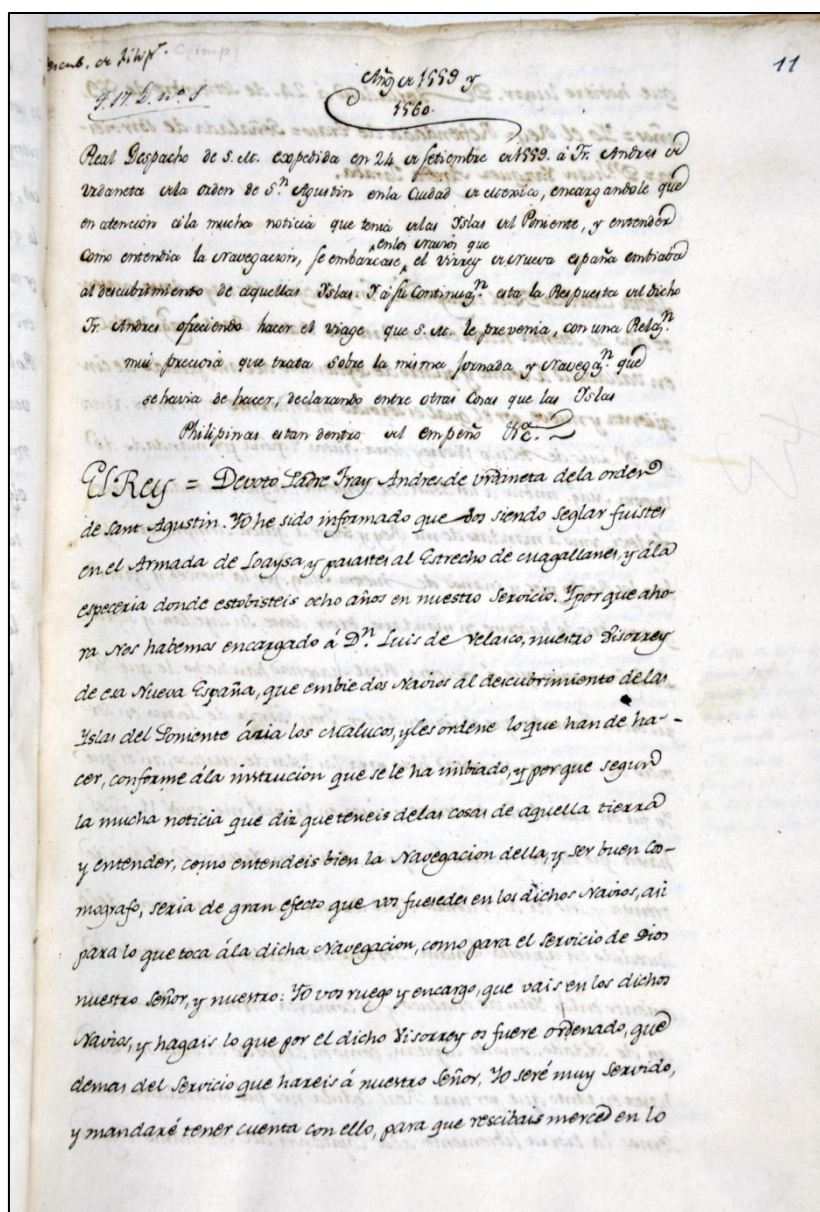 descub. de Filip.ˢ
11
Año de 1559 y
T. 17. D. nº. 1
1560.
Real Despacho de S. M. expedida en 24 de Setiembre de 1559. à Fr. Andres de
Urdaneta de la orden de S.ⁿ Agustin en la Ciudad de Mexico, encargandole que
en atencion à la mucha noticia que tenia de las Yslas del Poniente, y entender
como entendia la Navegacion, se embarcase en los navios que el Virrey de Nueva españa embiaba
al descubrimiento de aquellas Yslas. Y à su Continuaᵒⁿ. esta la Respuesta del dicho
Fr. Andres ofreciendo hacer el viage que S. M. le prevenia, con una Relaᵒⁿ.
mui preciosa que trata sobre la misma Jornada y Navegaᵒⁿ. que
se havia de hacer, declarando entre otras Cosas que las Yslas
Philipinas estan dentro del empeño &c.ª
El Rey = Devoto Padre Fray Andres de Urdaneta de la orden
de Sant Agustin. Yo he sido informado que vos siendo seglar fuistes
en el Armada de Loaysa, y pasastes al Estrecho de Magallanes, y à la
especeria donde estobisteis ocho años en nuestro Servicio. Y por que aho-
ra Nos habemos encargado à D.ⁿ Luis de Velasco, nuestro Visorrey
de esa Nueva España, que embie dos Navios al descubrimiento de las
Yslas del Poniente àzia los Malucos, y les ordene lo que han de ha-
cer, conforme à la instrucion que se le ha imbiado, y por que segun
la mucha noticia que diz que teneis de las cosas de aquella tierra
y entender, como entendeis bien la Navegacion della, y ser buen Cos-
mografo, seria de gran efecto que vos fuesedes en los dichos Navios, asi
para lo que toca à la dicha Navegacion, como para el Servicio de Dios
nuestro Señor, y nuestro: Yo vos ruego y encargo, que vais en los dichos
Navios, y hagais lo que por el dicho Visorrey os fuere ordenado, que
demas del Servicio que hareis à nuestro Señor, Yo seré muy Servido,
y mandaré tener cuenta con ello, para que rescibais merced en lo